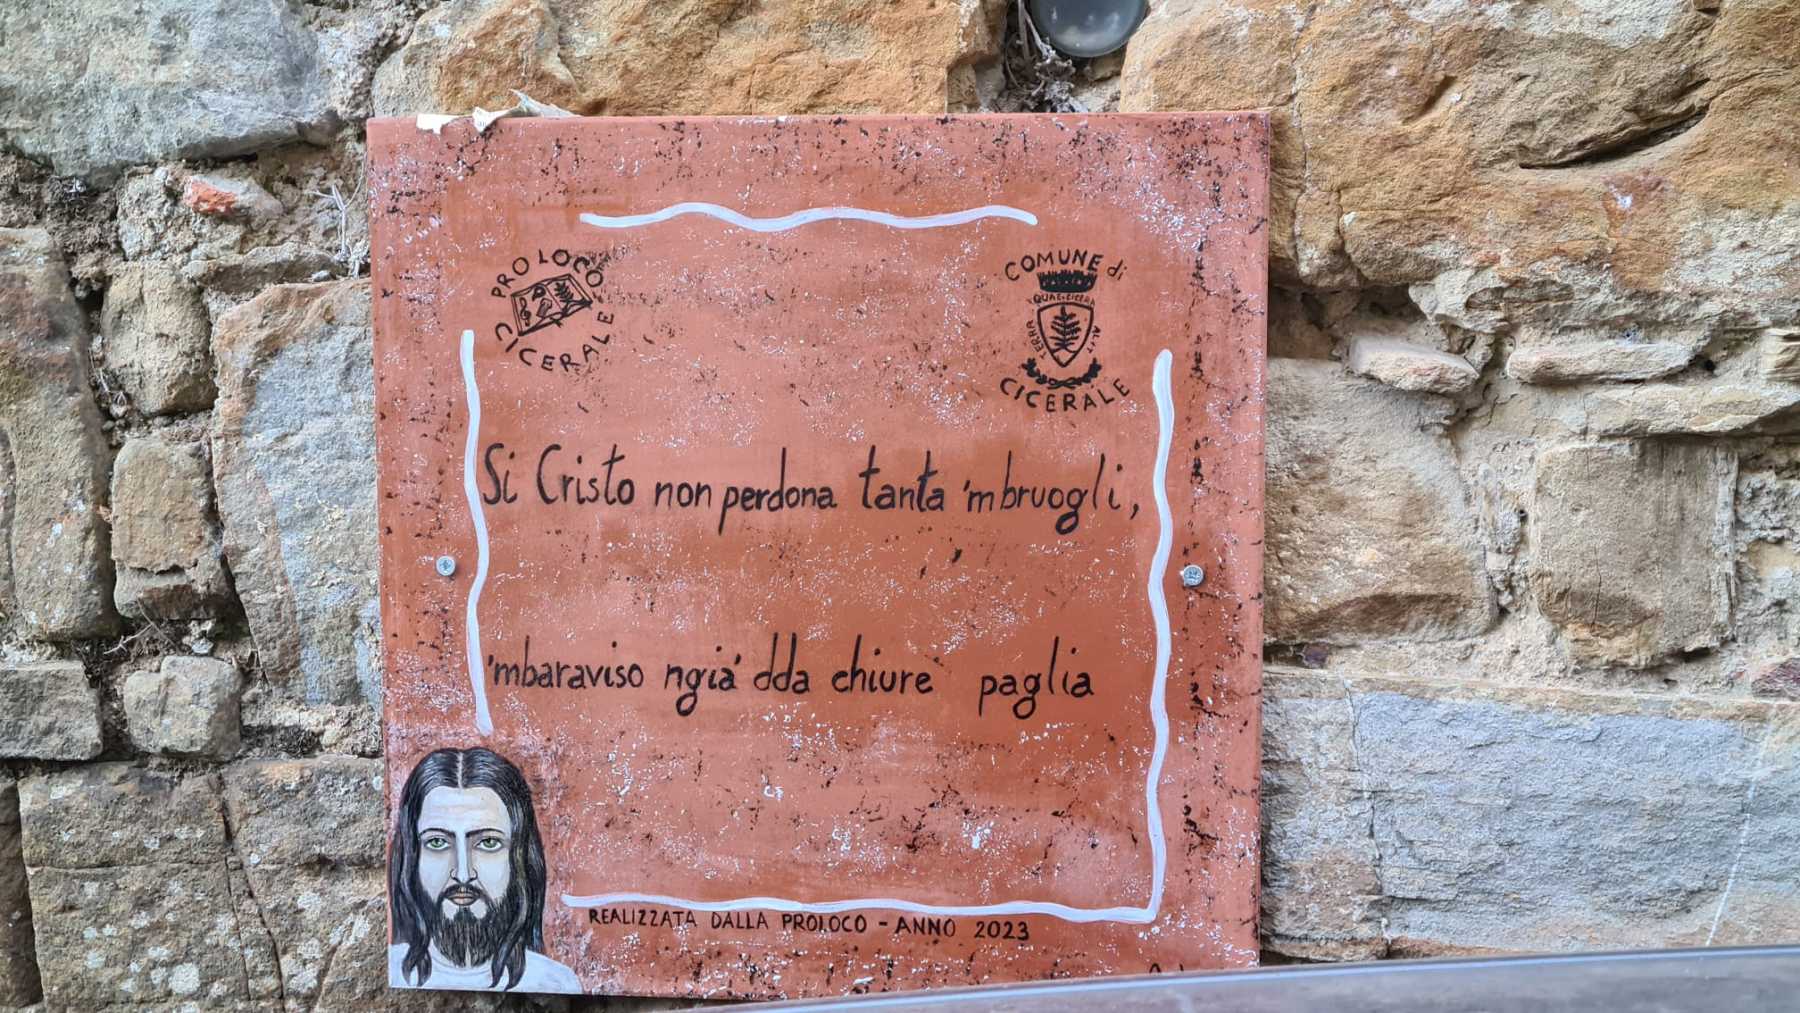 PRO LOCO
CICERALE
COMUNE di
TERRA QUAE CICERA ALIT
CICERALE
Si Cristo non perdona tanta 'mbruogli,
'mbaraviso ngia' dda chiure paglia
REALIZZATA DALLA PROLOCO - ANNO 2023